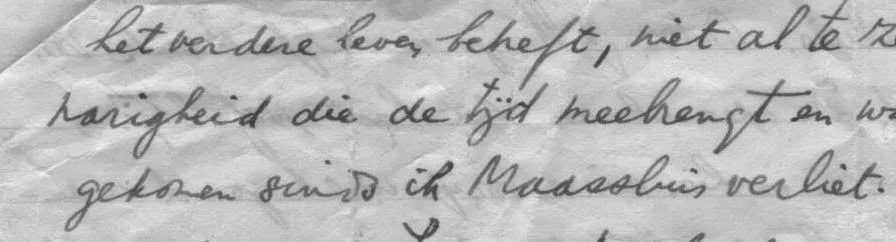 het verdere leven beheft, niet al te
narigheid die de tijd meebrengt en
gekomen sinds ik Maassluis verliet.